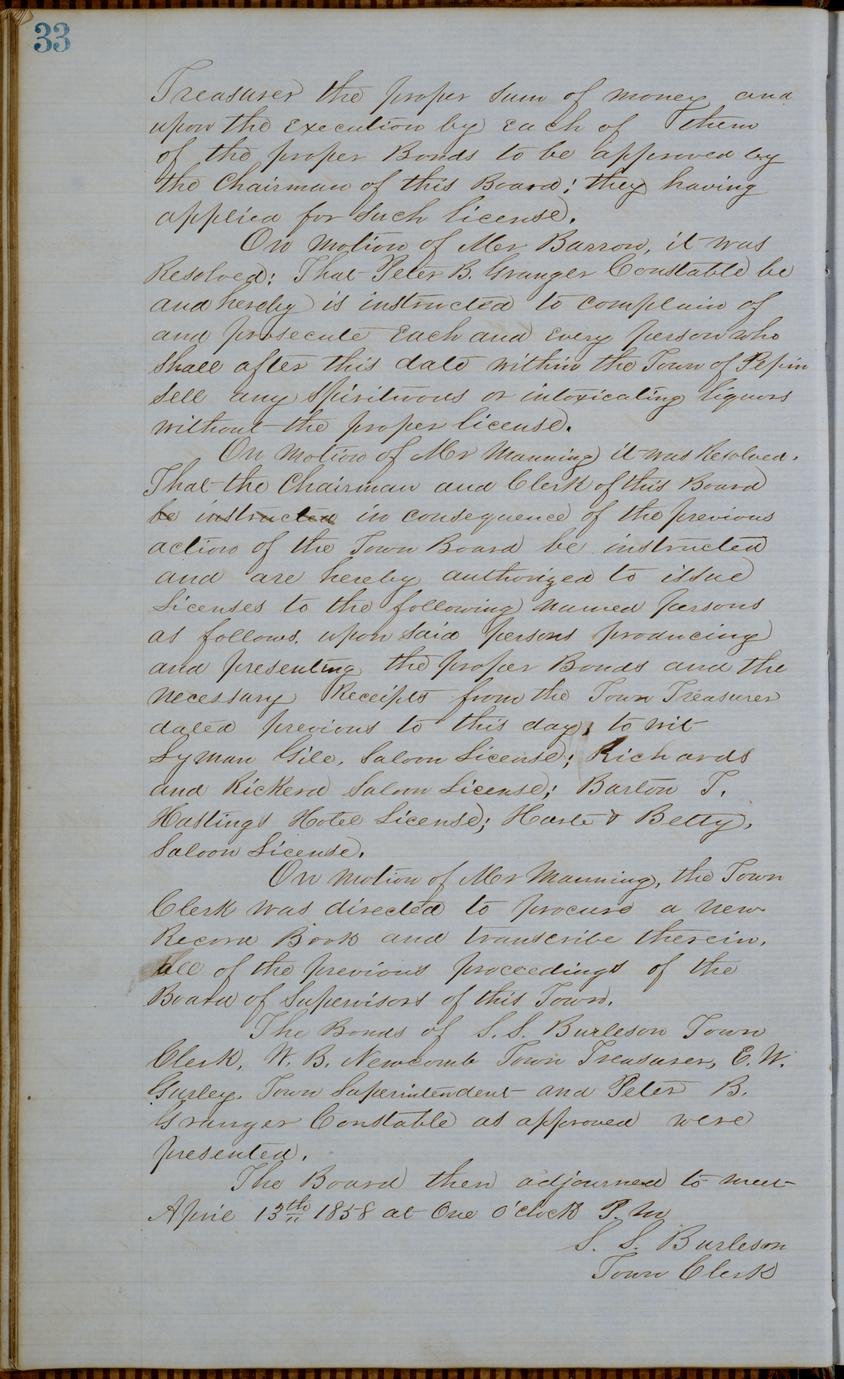 33
Treasurer the proper sum of money and
upon the execution by each of them
of the proper Bonds to be approved by
the Chairman of this Board; they having
applied for such license.
On motion of Mr Barrow, it was
Resolved; That Peter B. Granger Constable be
and hereby is instructed to complain of
and prosecute each and every person who
shall after this date within the Town of Pepin
sell any spirituous or intoxicating liquors
without the proper license.
On motion of Mr Manning it was Resolved.
That the Chairman and Clerk of this Board
be instructed in consequence of the previous
action of the Town Board be instructed
and are hereby authorized to issue
Licenses to the following named persons
as follows. upon said persons producing
and presenting the proper Bonds and the
necessary Receipts from the Town Treasurer
dated previous to this day, to wit
Lyman Gile, Saloon License; Richards
and Rickerd Saloon License; Barton T.
Hastings Hotel License; & Betty,
Saloon License.
On motion of Mr Manning, the Town
Clerk was directed to procure a new
Record Book and transcribe therein,
all of the previous proceedings of the
Board of Supervisors of this Town.
The Bonds of S. S. Burleson Town
Clerk, W. B. Newcomb Town Treasurer, E. W.
Gurley, Town Superintendent and Peter B.
Granger Constable as approved were
presented.
The Board then adjourned to meet
April 13th 1858 at One o'clock P. M
S. S. Burleson
Town Clerk